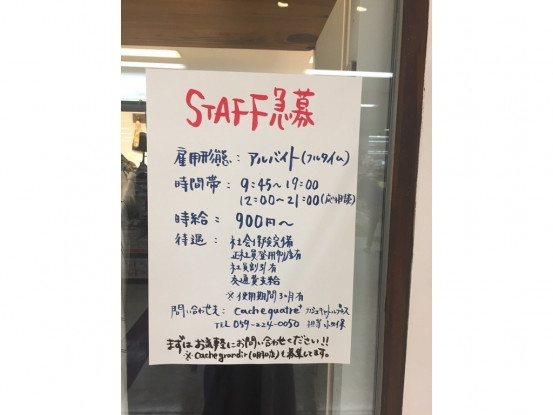 STAFF急募
雇用形態：アルバイト(フルタイム)
時間帯：9:45〜19:00
12:00〜21:00(応相談)
時給：900円〜
待遇：社会保険完備
正社員登用制度有
社員割引有
交通費支給
※使用期間3ヶ月有
問い合わせ先：cachequatre+
TEL 059-224-0050 担当
まずはお気軽にお問い合わせください!!
※cachegrandir()も募集してます。